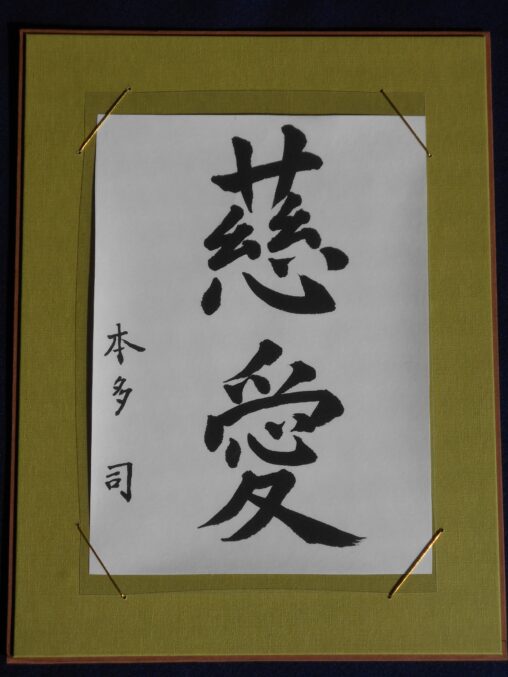 慈愛
本多 司